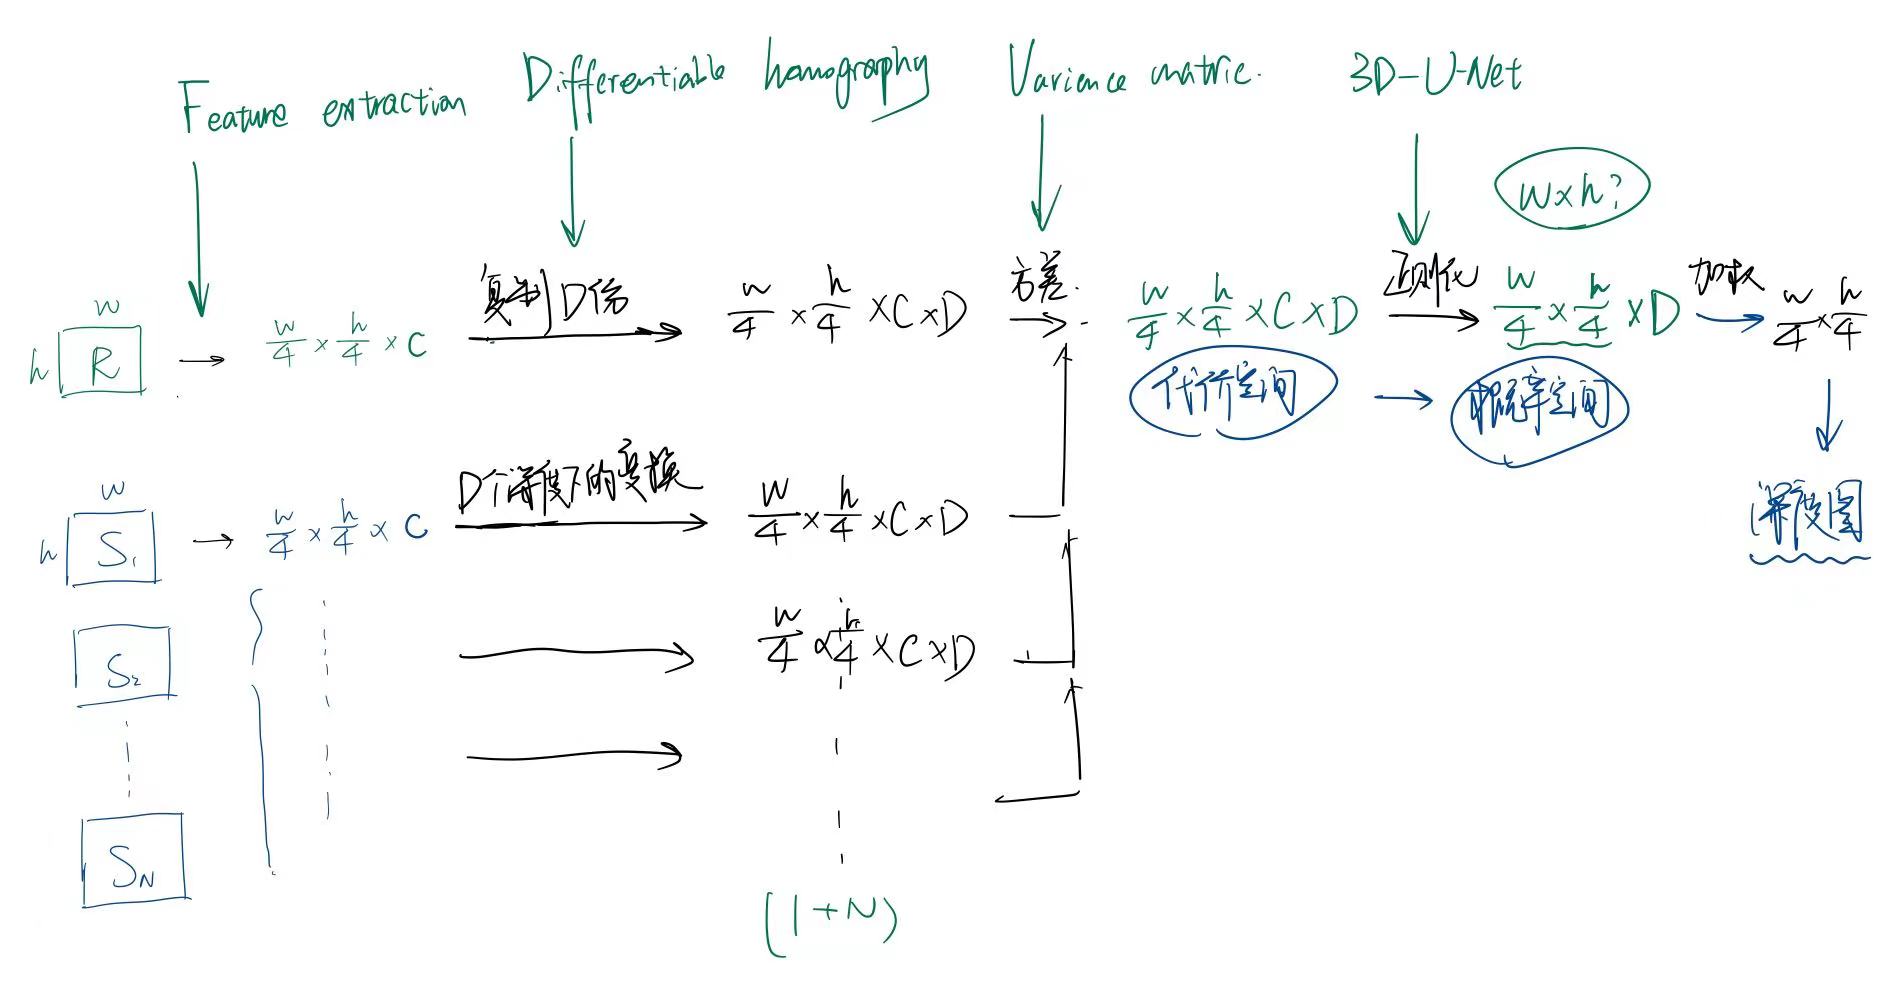 Feature extraction
Differentiable homography
Variance matric.
3D-U-Net
w×h?
w
h
R
→
w/4 × h/4 × C
复制D份
w/4 × h/4 × C × D
方差.
w/4 × h/4 × C × D
正则化
w/4 × h/4 × D
加权
w/4 × h/4
代价空间
→
概率空间
深度图
w
h
S₁
→
w/4 × h/4 × C
D个深度下的变换
w/4 × h/4 × C × D
S₂
w/4 × h/4 × C × D
S_N
(1+N)